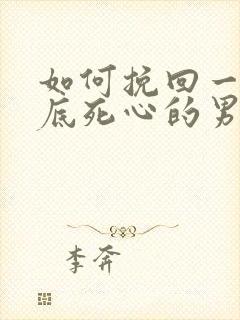 如何挽回一
底死心的男
李奔